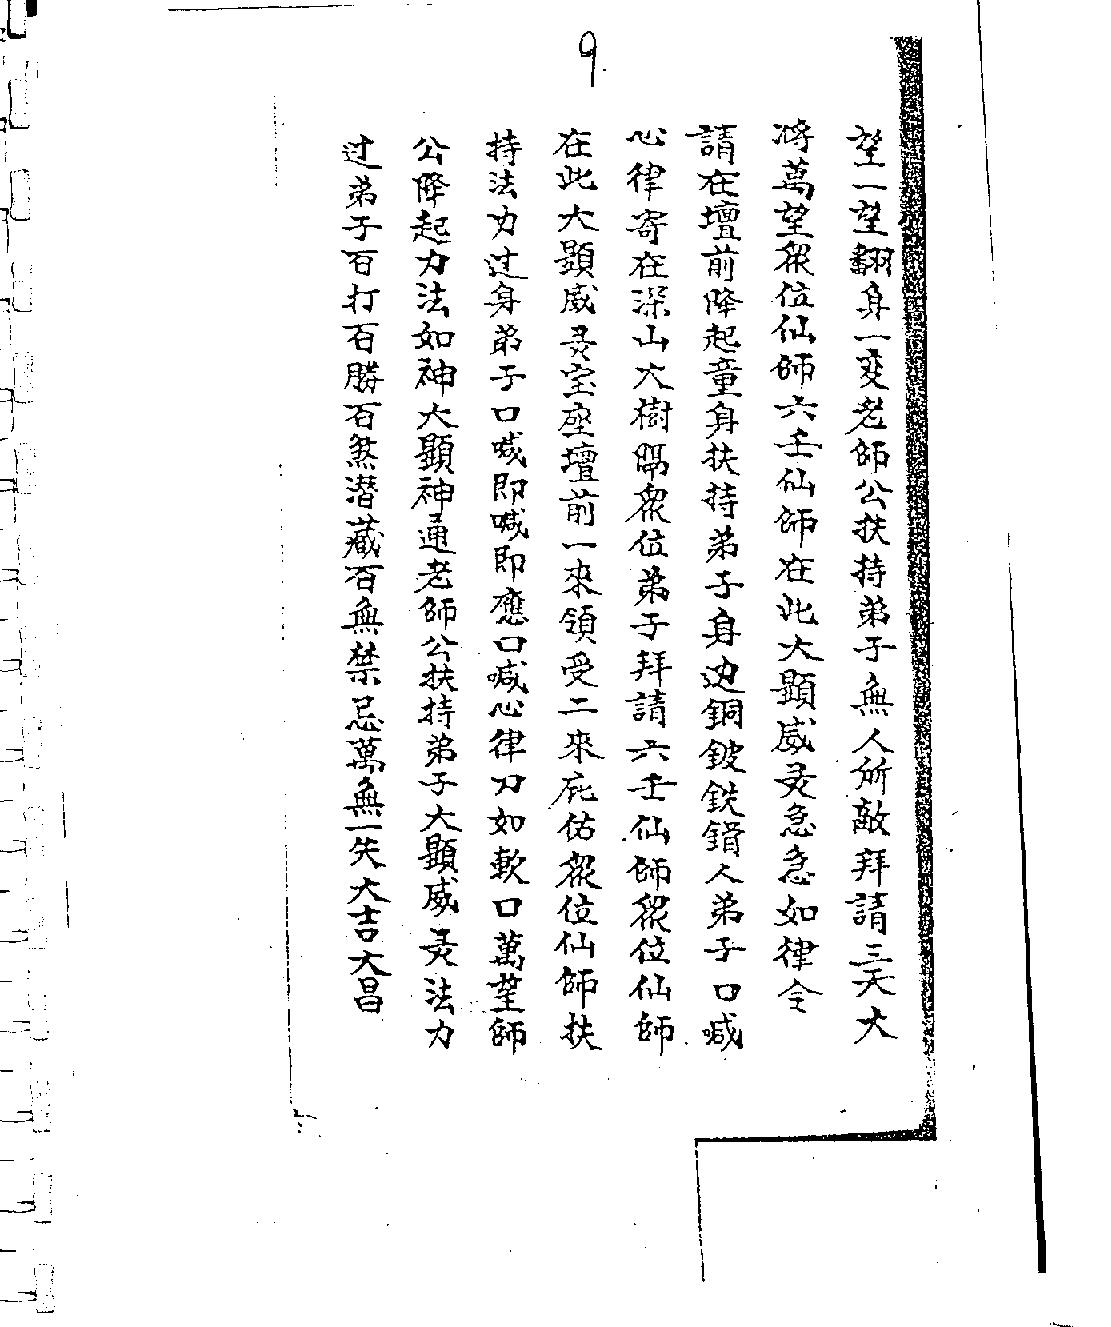 9
望一望翻身一变老師公扶持弟子無人所敵拜請三天大
將萬望眾位仙師六壬仙師在此大顯威灵急急如律令
請在壇前降起童身扶持弟子身边銅鈹銑鎖人弟子口喊
心律寄在深山大樹隔眾位弟子拜請六壬仙師眾位仙師
在此大顯威灵宝座壇前一來領受二來庇佑眾位仙師扶
持法力过身弟子口喊即喊即應口喊心律刀如軟口萬望師
公降起力法如神大顯神通老師公扶持弟子大顯威灵法力
过弟子百打百勝百煞潜藏百無禁忌萬無一失大吉大昌